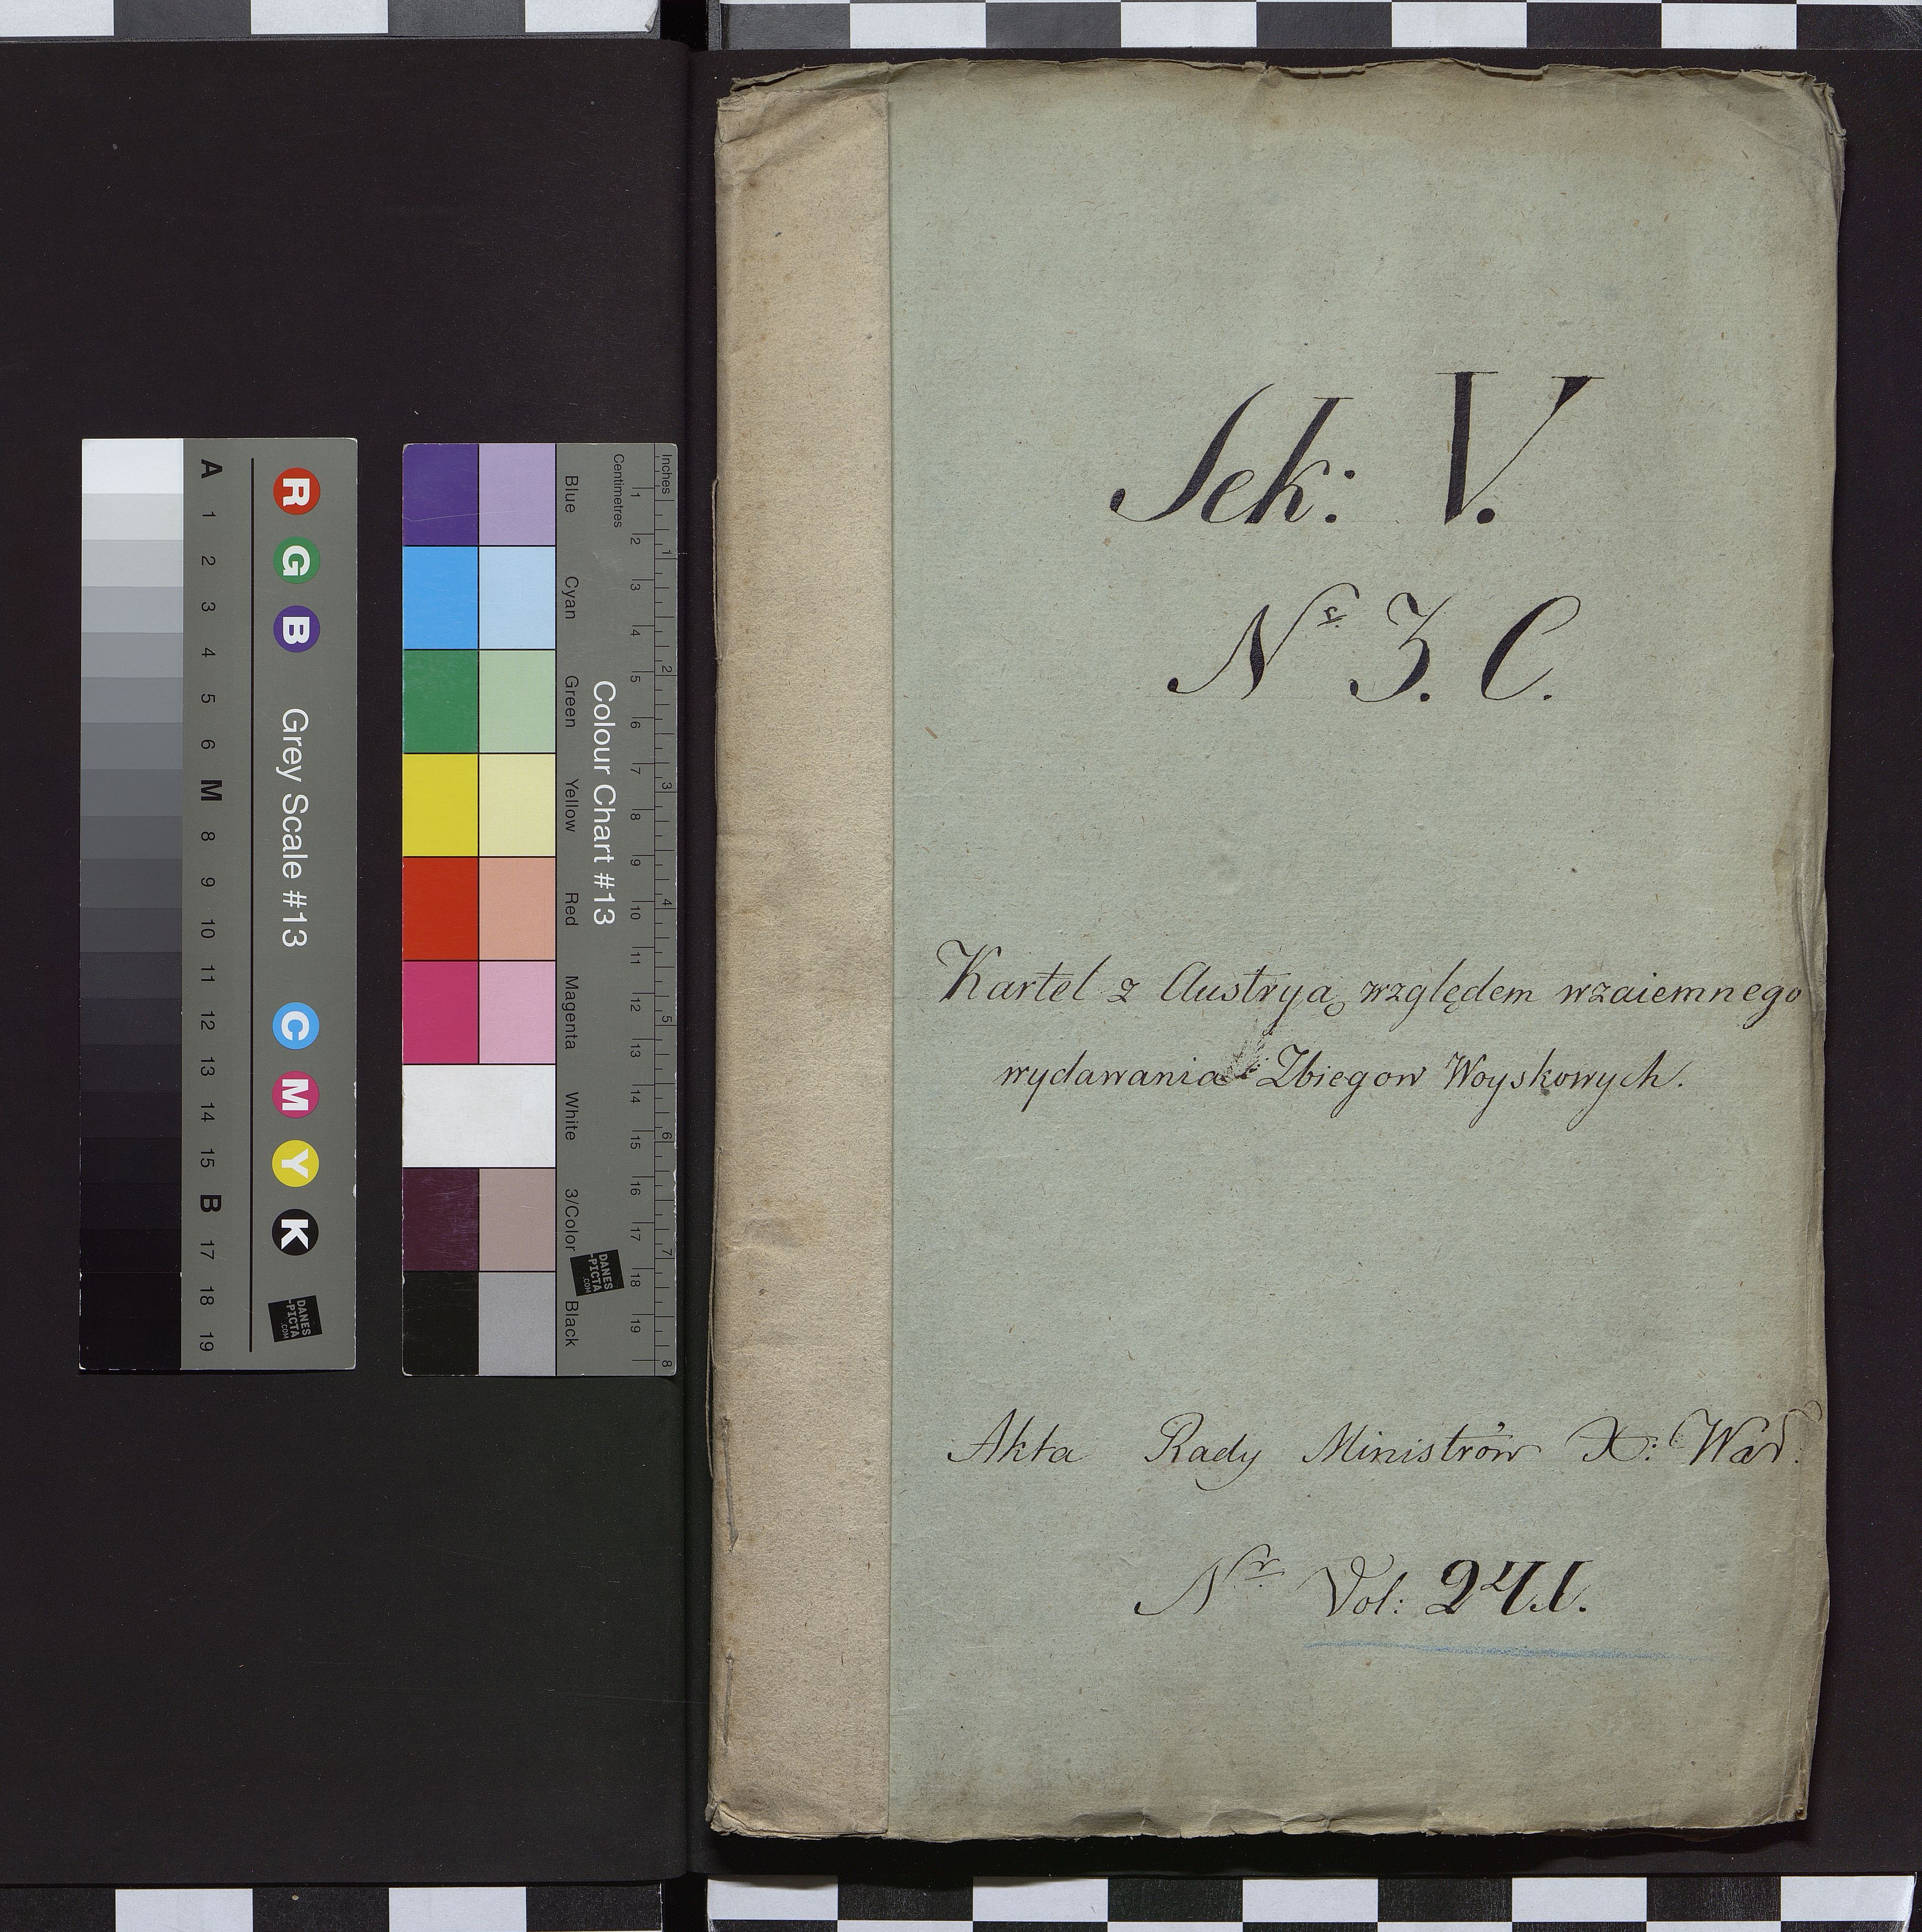 Sek: V.
Nr 3. C.
Kartel z Austryą względem wzaiemnego
wydawania Zbiegow Woyskowych.
Akta Rady Ministrów X: War:
Nr Vol: 241.
A 1 2 3 4 5 6 M 8 9 10 11 12 13 14 15 B 17 18 19
R G B Grey Scale #13 C M Y K
DANES
-PICTA
.COM
Blue Cyan Green Yellow Red Magenta White 3/Color Black
Colour Chart #13
DANES
-PICTA
.COM
Centimetres 1 2 3 4 5 6 7 8 9 10 11 12 13 14 15 16 17 18 19
Inches 1 2 3 4 5 6 7 8